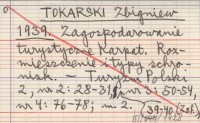 TOKARSKI Zbigniew
1939. Zagospodarowanie
turystyczne Karpat. Roz-
mieszczenie i typy schro-
nisk. — Turyzm Polski
2, nr 2: 28-31, nr 3: 50-54,
nr 4: 76-78; m. 2. (39-40)